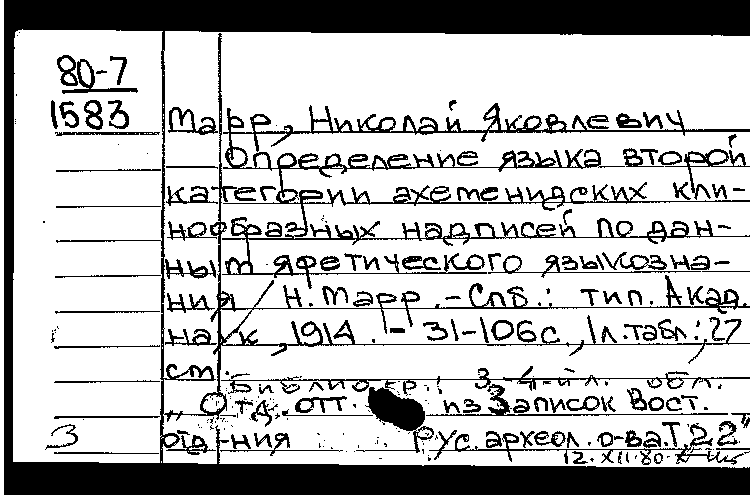 80-7
1583
Марр, Николай Яковлевич
Определение языка второй
категории ахеменидских кли-
нообразных надписей по дан-
ным яфетического языкозна-
ния / Н. Марр. - Спб.: тип. Акад.
наук, 1914. - 31-106 с., 1 л. табл.; 27
см.
Библиогр.: 3-4-й л. обл.
„Отд. отт. из Записок Вост.
отд-ния Рус. археол. о-ва. Т. 22"
3
12.XII.80.